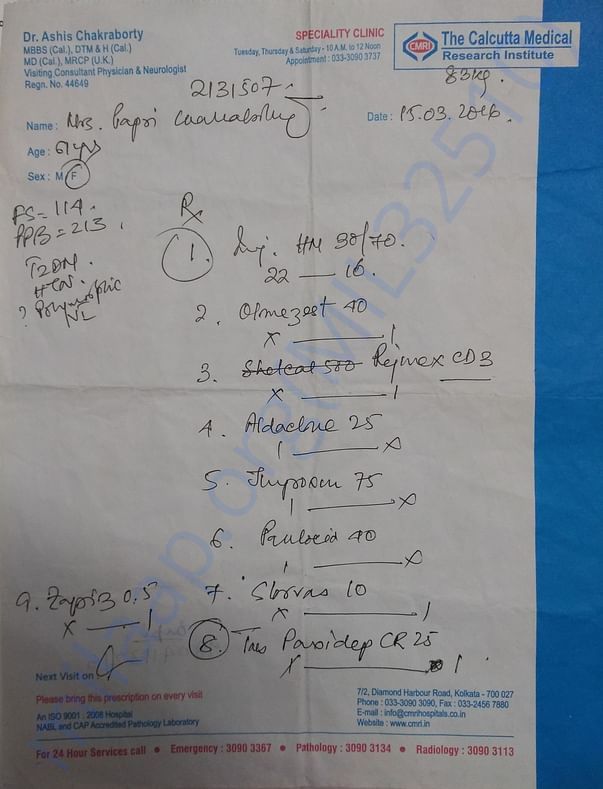 Dr. Ashis Chakraborty
MBBS (Cal.), DTM & H (Cal.)
MD (Cal.), MRCP (U.K.)
Visiting Consultant Physician & Neurologist
Regn. No. 44649
SPECIALITY CLINIC
Tuesday, Thursday & Saturday - 10 A.M. to 12 Noon
Appointment : 033-3090 3737
CMRI
The Calcutta Medical
Research Institute
83kg.
2131507
Name : Mrs.
Date : 15.03.2016.
Age : 61 yrs
Sex : M F
FS = 114.
PPB = 213.
T2DM.
HTN.
? Polymorphic
NL
Rx
1. Inj. HM 30/70.
22 — 16.
2. Olmezest 40
x — 1
3. Shelcal 500 Rejinex CD3
x — 1
4. Aldactone 25
1 — x
5. 75
1 — x
6. 40
1 — x
7. Storvas 10
x — 1
8. Tab Paxidep CR 25
x — 1
9. Zapiz 0.5
x — 1
Next Visit on
Please bring this prescription on every visit
An ISO 9001 : 2008 Hospital
NABL and CAP Accredited Pathology Laboratory
7/2, Diamond Harbour Road, Kolkata - 700 027
Phone : 033-3090 3090, Fax : 033-2456 7880
E-mail : info@cmrihospitals.co.in
Website : www.cmri.in
For 24 Hour Services call • Emergency : 3090 3367 • Pathology : 3090 3134 • Radiology : 3090 3113